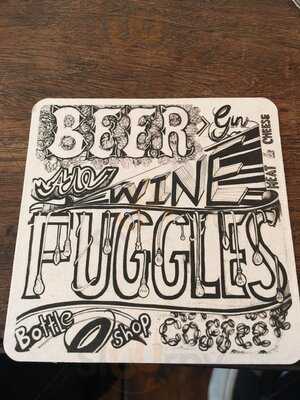 BEER
> Gin
Ale
WINE
MEAT & CHEESE
FUGGLES
Bottle shop
COFFEE